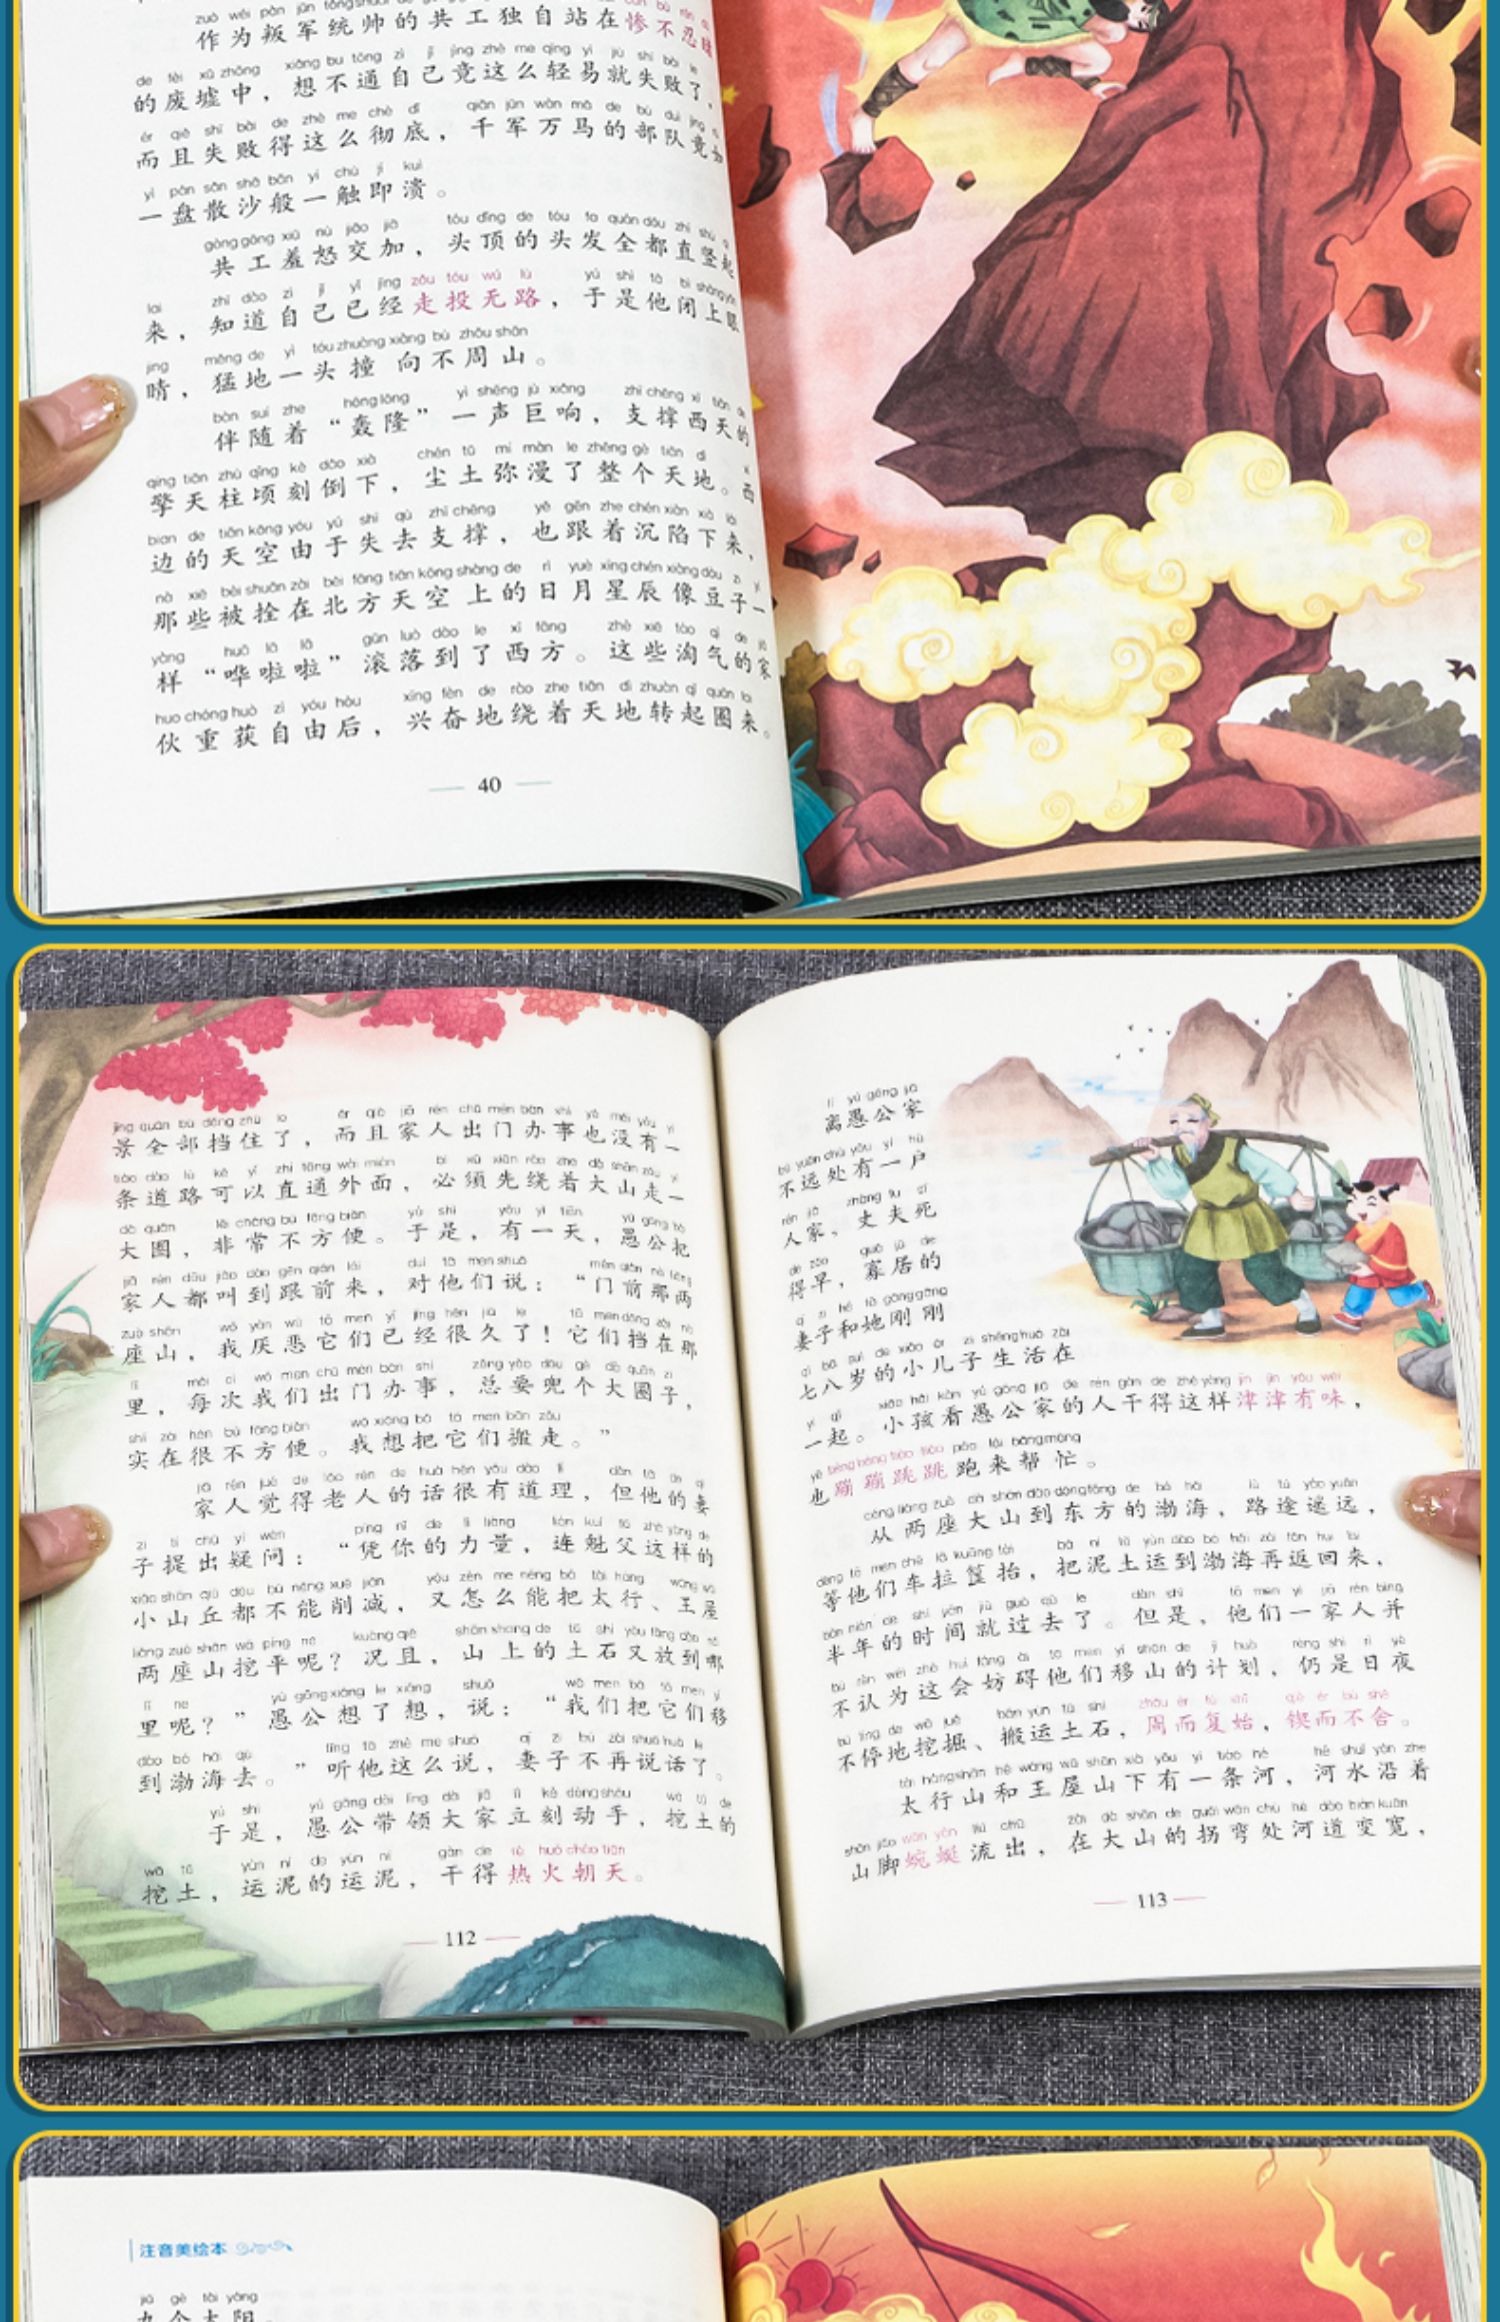 作为叛军统帅的共工独自站在惨不忍睹
的废墟中，想不通自己竟这么轻易就失败了，
而且失败得这么彻底，千军万马的部队竟如
一盘散沙般一触即溃。
共工羞怒交加，头顶的头发全都直竖起
来，知道自己已经走投无路，于是他闭上眼
睛，猛地一头撞向不周山。
伴随着“轰隆”一声巨响，支撑西天的
擎天柱顷刻倒下，尘土弥漫了整个天地。西
边的天空由于失去支撑，也跟着沉陷下来，
那些被拴在北方天空上的日月星辰像豆子一
样“哗啦啦”滚落到了西方。这些淘气的家
伙重获自由后，兴奋地绕着天地转起圈来。
40
景全部挡住了，而且家人出门办事也没有一
条道路可以直通外面，必须先绕着大山走一
大圈，非常不方便。于是，有一天，愚公把
家人都叫到跟前来，对他们说：“门前那两
座山，我厌恶它们已经很久了！它们挡在那
里，每次我们出门办事，总要兜个大圈子，
实在很不方便。我想把它们搬走。”
家人觉得老人的话很有道理，但他的妻
子提出疑问：“凭你的力量，连魁父这样的
小山丘都不能削减，又怎么能把太行、王屋
两座山挖平呢？况且，山上的土石又放到哪
里呢？”愚公想了想，说：“我们把它们移
到渤海去。”听他这么说，妻子不再说话了。
于是，愚公带领大家立刻动手，挖土的
挖土，运泥的运泥，干得热火朝天。
112
离愚公家
不远处有一户
人家，丈夫死
得早，寡居的
妻子和她刚刚
七八岁的小儿子生活在
一起。小孩看愚公家的人干得这样津津有味，
也蹦蹦跳跳跑来帮忙。
从两座大山到东方的渤海，路途遥远，
等他们车拉筐抬，把泥土运到渤海再返回来，
半年的时间就过去了。但是，他们一家人并
不认为这会妨碍他们移山的计划，仍是日夜
不停地挖掘、搬运土石，周而复始，锲而不舍。
太行山和王屋山下有一条河，河水沿着
山脚蜿蜒流出，在大山的拐弯处河道变宽，
113
注音美绘本
jiǔ gè tài yáng
九个太阳